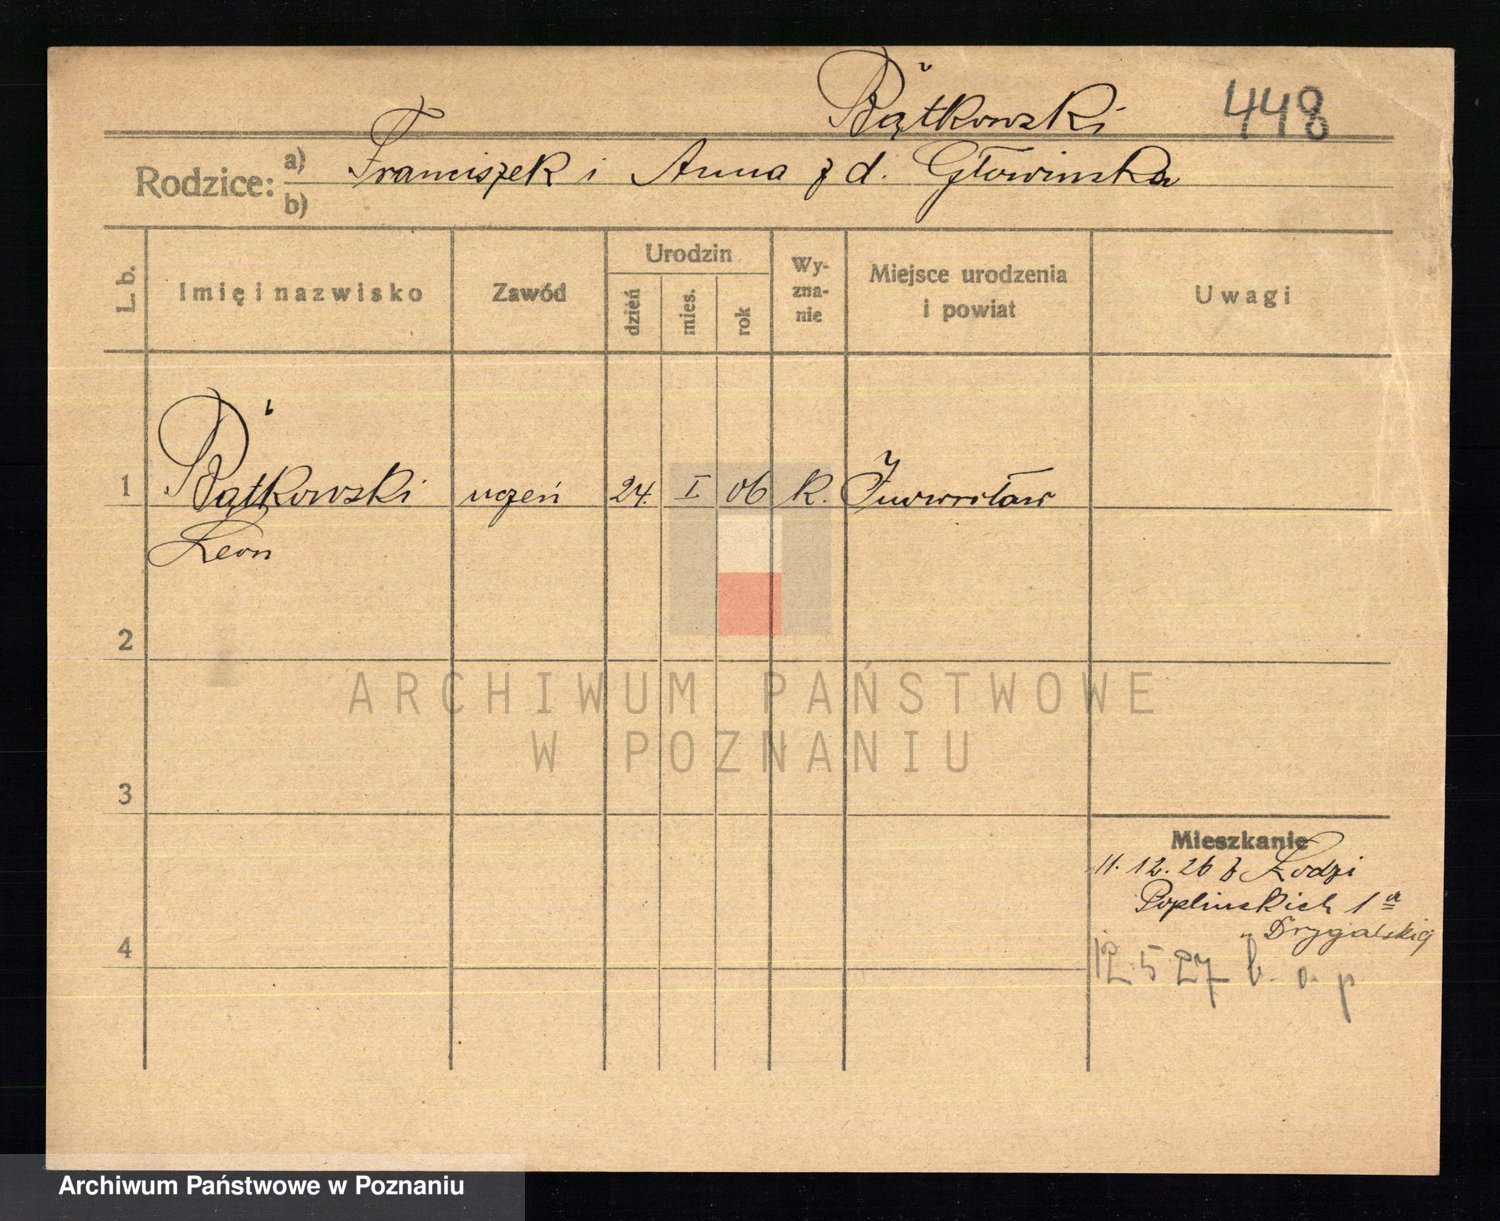 Bątkowski 448
Rodzice: a) Franciszek i Anna z d. Głowinska
b)
L. b. Imię i nazwisko Zawód Urodzin dzień mies. rok Wyznanie Miejsce urodzenia i powiat Uwagi
1 Bątkowski uczeń 24. I 06 k. Inowrocław
Leon
2
ARCHIWUM PAŃSTWOWE
W POZNANIU
3
Mieszkanie
11. 12. 26 z Łodzi
Poplinskich 1a
4 u Drygalskiej
12 5 27 b. o. p
Archiwum Państwowe w Poznaniu